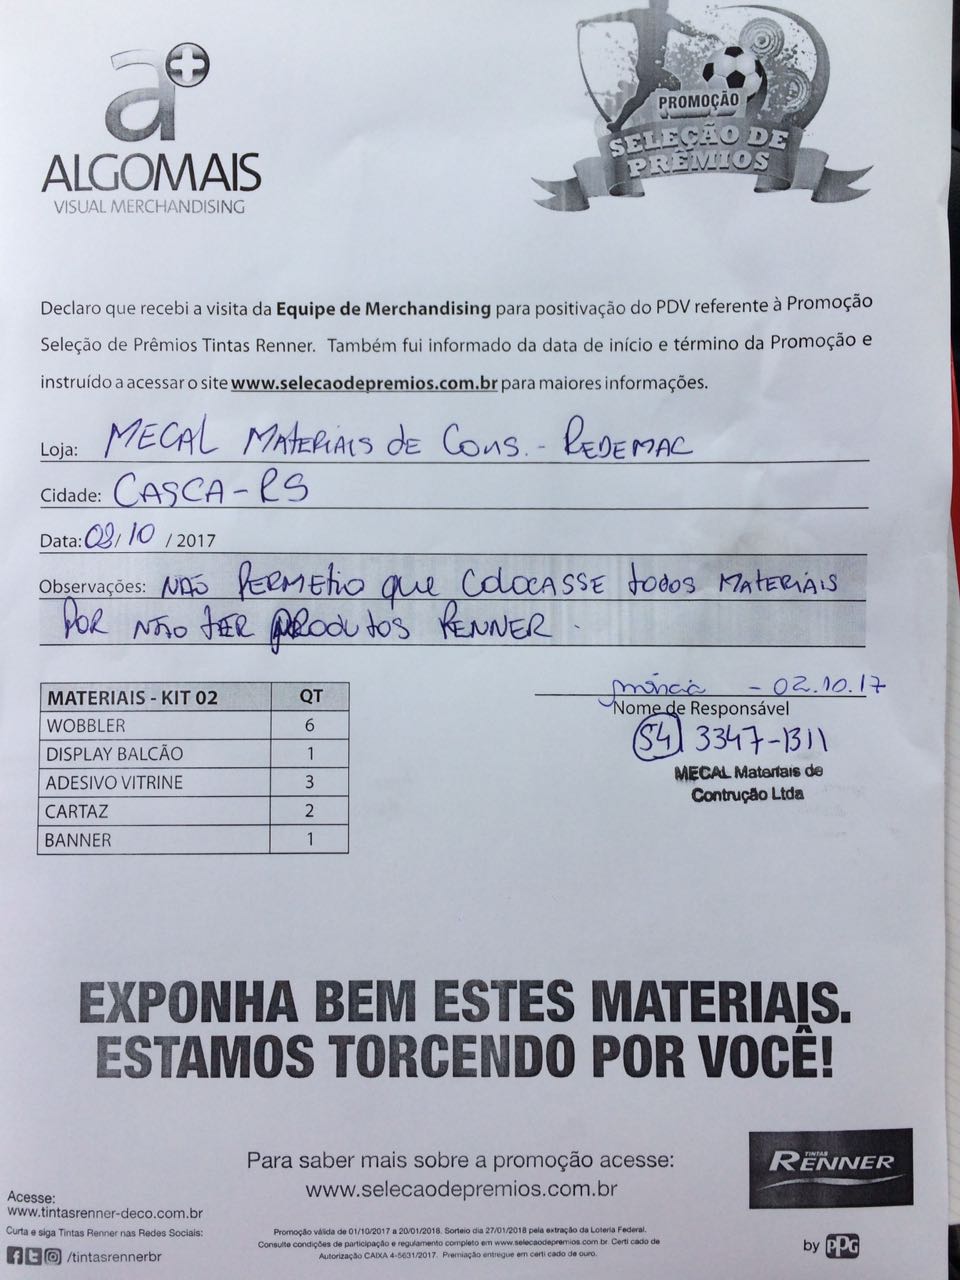 a+
ALGOMAIS
VISUAL MERCHANDISING
PROMOÇÃO
SELEÇÃO DE
PRÊMIOS
Declaro que recebi a visita da Equipe de Merchandising para positivação do PDV referente à Promoção
Seleção de Prêmios Tintas Renner. Também fui informado da data de início e término da Promoção e
instruído a acessar o site www.selecaodepremios.com.br para maiores informações.
Loja: MECAL MATERIAIS DE CONS. - REDEMAC
Cidade: CASCA-RS
Data: 02/10 / 2017
Observações: NÃO PERMETIO QUE COLOCASSE TODOS MATERIAIS
POR NÃO TER PRODUTOS RENNER.
MATERIAIS - KIT 02 QT
WOBBLER 6
DISPLAY BALCÃO 1
ADESIVO VITRINE 3
CARTAZ 2
BANNER 1
- 02.10.17
Nome de Responsável
(54) 3347-1311
MECAL Materiais de
Contrução Ltda
EXPONHA BEM ESTES MATERIAIS.
ESTAMOS TORCENDO POR VOCÊ!
Para saber mais sobre a promoção acesse:
www.selecaodepremios.com.br
TINTAS
RENNER
Acesse:
www.tintasrenner-deco.com.br
Curta e siga Tintas Renner nas Redes Sociais:
/tintasrennerbr
Promoção válida de 01/10/2017 a 20/01/2018. Sorteio dia 27/01/2018 pela extração da Loteria Federal.
Consulte condições de participação e regulamento completo em www.selecaodepremios.com.br. Certi cado de
Autorização CAIXA 4-5631/2017. Premiação entregue em certi cado de ouro.
by PPG